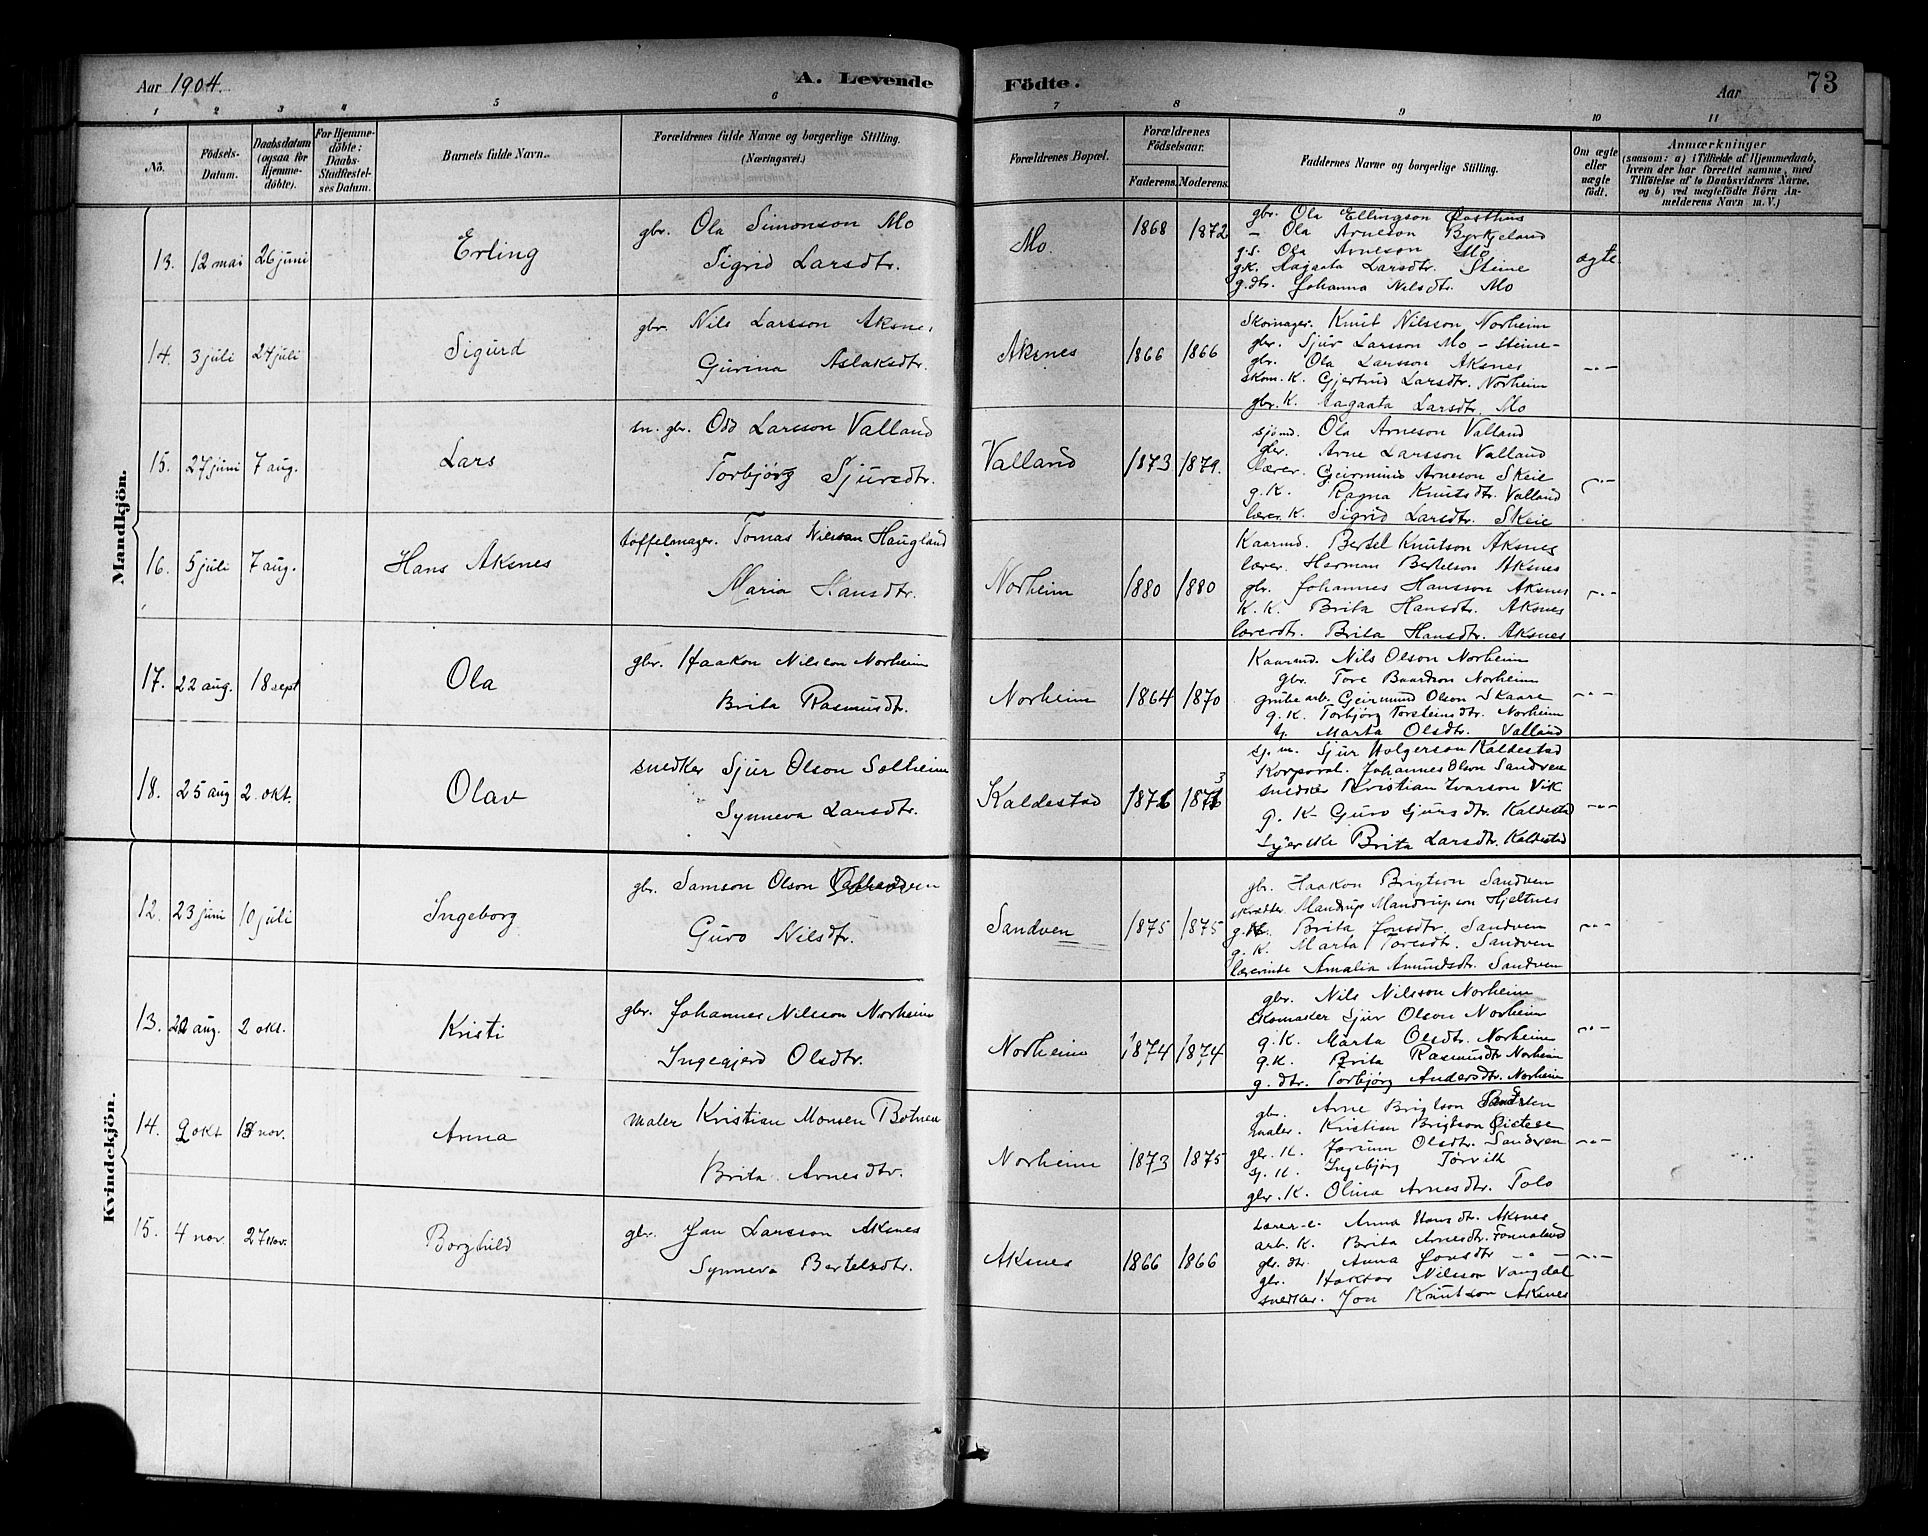 Aar 1904. A. Levende Födte. Aar 73
1 2 3 4 5 6 7 8 9 10 11
No. Födsels-Datum. Daabsdatum (ogsaa for Hjemme-döbte). For Hjemme-döbte: Daabs-Stadfæstel-ses Datum. Barnets fulde Navn. Forældrenes fulde Navne og borgerlige Stilling. (Næringsvei.) Forældrenes Bopæl. Forældrenes Födselsaar. Faderens. Moderens. Faddernes Navne og borgerlige Stilling. Om ægte eller uægte födt. Anmærkninger (saasom: a) i Tilfælde af Hjemmedaab, hvem der har forrettet samme, med Tilföielse af to Daabsvidners Navne, og b) ved uægtefödte Börn An-melderens Navn m. V.)
Mandkjön.
13. 12 mai 26 juni Erling gbr. Ola Simonson Mo
Sigrid Larsdtr.
Mo. 1868 1872
gbr. Ola Ellingson Øosthus
– Ola Arneson Byrkjeland
g.s. Ola Arneson Mo
g.K. Hagaata Larsdtr. Steine
g.dtr. Johanna Nilsdtr. Mo
ægte
14. 3 juli 24 juli Sigurd gbr. Nils Larsson Aksnes
Gurina Aslaksdtr.
Aksnes 1866 1866
Skomager. Knut Nilsson Norheim
gbr. Sjur Larsson Mo – Steine –
gbr. Ola Larsson Aksnes
skom. K. Gjertrud Larsdtr. Norheim
gbr. K. Aagaata Larsdtr. Mo
–"–
15. 27 juni 7 aug. Lars sn. gbr. Odd Larsson Valland
Torbjörg Sjursdtr.
Valland 1873 1879.
sjömd. Ola Arneson Valland
gbr. Arne Larsson Valland
lærer. Geirmund Arneson Skeie
g.K. Ragna Knutsdtr. Valland
lærer. K. Sigrid Larsdtr. Skeie
–"–
16. 5 juli 7 aug. Hans Aksnes toffelmager. Tomas Nilsson Haugland
Maria Hansdtr.
Norheim 1880 1880
Kaarmd. Bertel Knutson Aksnes
lærer. Herman Bertelson Aksnes
gbr. Johannes Hansson Aksnes
K. K. Brita Hansdtr. Aksnes
lærerdtr. Brita Hansdtr. Aksnes
–"–
17. 22 aug. 18 sept Ola gbr. Haakon Nilsson Norheim
Brita Rasmusdtr.
Norheim 1864 1870
Kaarmd. Nils Olson Norheim
gbr. Tore Baardson Norheim
grube arb. Geirmund Olson Skaare
g.K. Torbjörg Torsteinsdtr. Norheim
Marta Olsdtr. Valland
–"–
18. 25 aug 2. okt. Olav snedker Sjur Olson Solheim
Synneva Larsdtr.
Kaldestad
sj.m. Sjur Holgerson Kaldestad
Korporal. Johannes Olson Sandven
snedker Kristian Ivarson Vik
g. K– Guro Sjursdtr. Kaldestad
Syerske Brita Larsdtr. Kaldestad
–"–
Kvindekjön.
12. 23 juni 10 juli Ingeborg gbr. Samson Olson
Guro Nilsdtr.
Sandven 1875 1875
gbr. Haakon Brigtson Sandven
skrædder. Mandrup Mandrupson Hjeltnes
g.K. Brita Jonsdtr. Sandven
g.K. Marta Toresdtr. Sandven
lærerinde Amalia Amundsdtr. Sandven
–"–
13. 22 aug. 2 okt. Kristi gbr. Johannes Nilsson Norheim
Ingegjerd Olsdtr.
Norheim 1874 1874
gbr. Nils Nilsson Norheim
skomaker Sjur Olson Norheim
g.K. Marta Olsdtr. Norheim
g.K. Brita Rasmusdtr Norheim
g.dtr. Torbjörg Andersdtr. Norheim
–"–
14. 2 okt 13 nov. Anna maler Kristian Monsen Botnen
Brita Arnesdtr.
Norheim 1873 1875
gbr. Arne Brigtson Sandven
maler. Kristian Brigtson
gbr. K. Jorunn Olsdtr. Sandven
Sj. K. Ingebjörg Torvik
gbr. K. Olina Arnesdtr. Tolo
–"–
15. 4 nov. 27 nov. Borghild gbr. Jan Larsson Aksnes
Synneva Bertelsdtr.
Aksnes 1866 1866
Lærer-e. Anna Hansdtr. Aksnes
arb. K. Brita Arnesdtr. Fonnaland
gbr. dtr. Anna Jonsdtr – " –
gbr. Haktor Nilsson Vangdal
snedker. Jon Knutson Aksnes
–"–